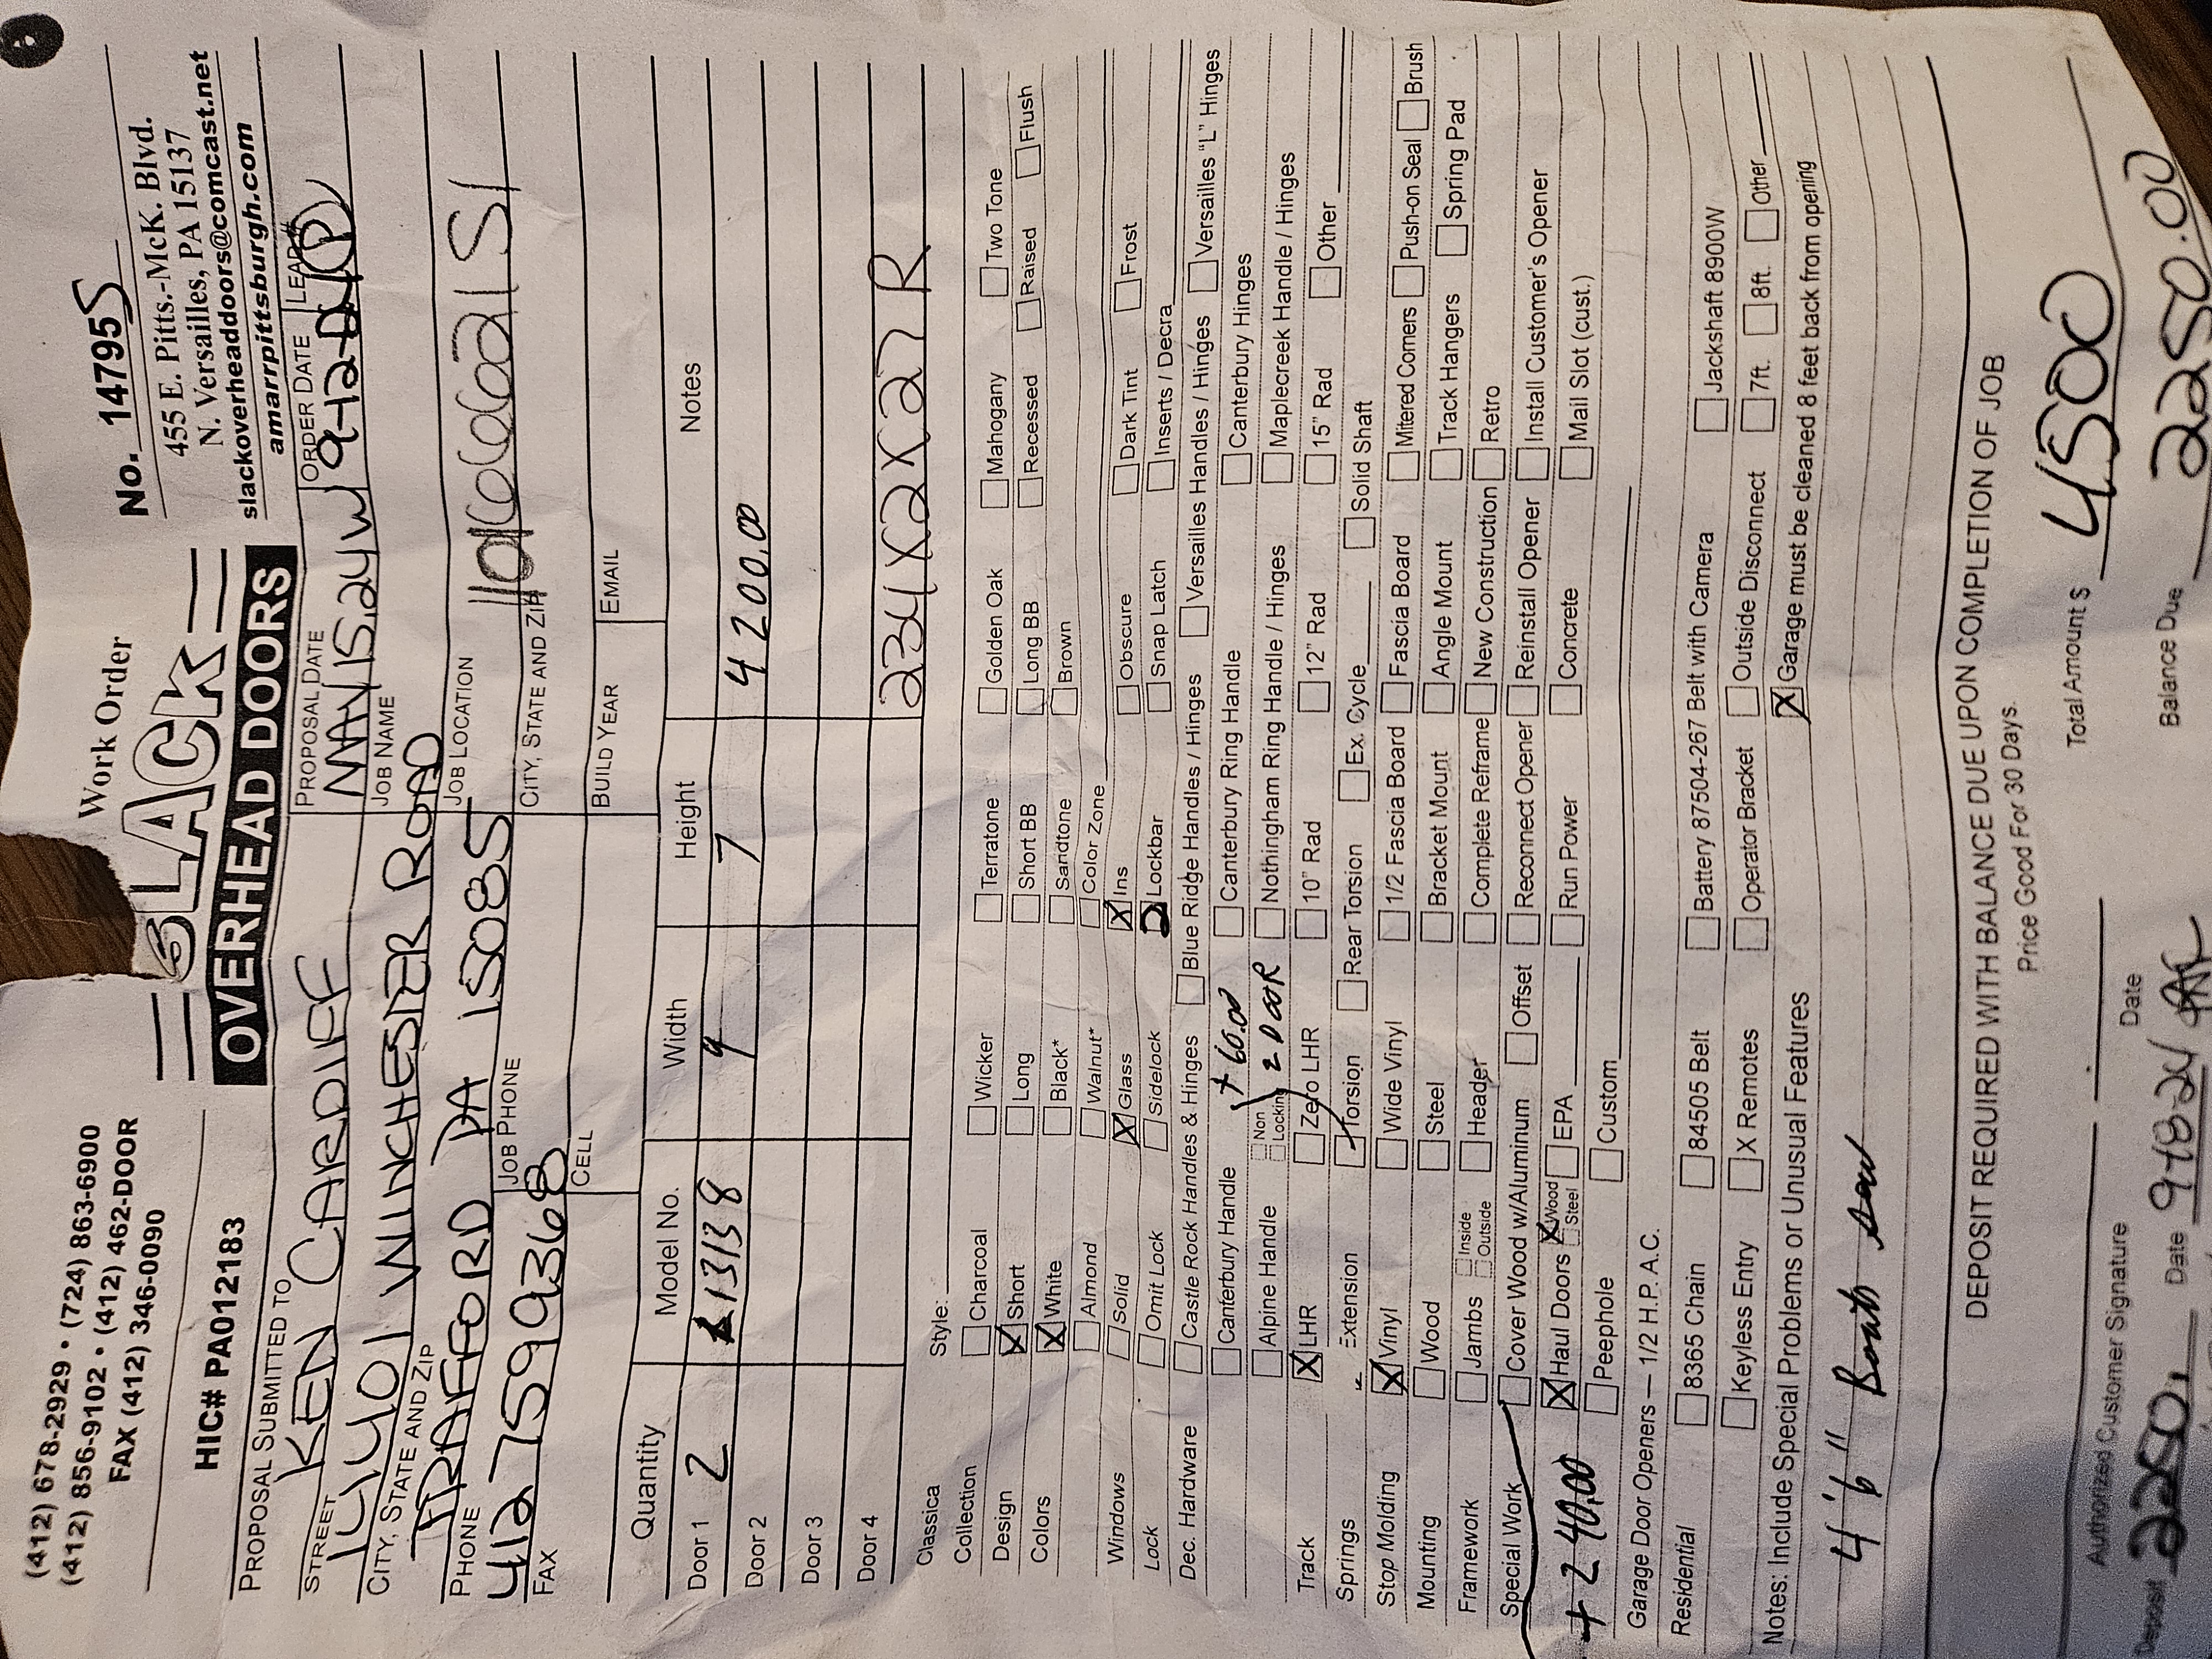 (412) 678-2929 • (724) 863-6900
(412) 856-9102 • (412) 462-DOOR
FAX (412) 346-0090
HIC# PA012183
Work Order
SLACK
OVERHEAD DOORS
No. 14795S
455 E. Pitts.-McK. Blvd.
N. Versailles, PA 15137
slackoverheaddoors@comcast.net
amarrpittsburgh.com
PROPOSAL SUBMITTED TO KEN CARDIFF
PROPOSAL DATE MAY 15,24 W
ORDER DATE 9-12-24 LEAD # P
STREET 14401 WINCHESTER ROAD
JOB NAME
CITY, STATE AND ZIP TRAFFORD PA 15085
JOB LOCATION
PHONE 412 7599368
JOB PHONE
CITY, STATE AND ZIP
FAX
CELL
BUILD YEAR
EMAIL
Quantity Model No. Width Height Notes
Door 1 2 13138 9 7 4200.00
Door 2
Door 3
Door 4 234X2X27 R
Classica Style:
Collection Charcoal Wicker Terratone Golden Oak Mahogany Two Tone
Design X Short Long Short BB Long BB Recessed Raised Flush
Colors X White Black* Sandtone Brown
Almond Walnut* Color Zone
Windows Solid X Glass X Ins Obscure Dark Tint Frost
Lock Omit Lock Sidelock 2 Lockbar Snap Latch Inserts / Decra
Dec. Hardware Castle Rock Handles & Hinges Blue Ridge Handles / Hinges Versailles Handles / Hinges Versailles "L" Hinges
Canterbury Handle + 60.00 Canterbury Ring Handle Canterbury Hinges
Alpine Handle Non Locking 2 DOOR Nothingham Ring Handle / Hinges Maplecreek Handle / Hinges
Track X LHR Zero LHR 10" Rad 12" Rad 15" Rad Other
Springs Extension Torsion Rear Torsion Ex. Cycle Solid Shaft
Stop Molding X Vinyl Wide Vinyl 1/2 Fascia Board Fascia Board Mitered Corners Push-on Seal Brush
Mounting Wood Steel Bracket Mount Angle Mount Track Hangers Spring Pad
Framework Jambs Inside Outside Header Complete Reframe New Construction Retro
Special Work Cover Wood w/Aluminum Offset Reconnect Opener Reinstall Opener Install Customer's Opener
+ 240.00 X Haul Doors X Wood Steel EPA Run Power Concrete Mail Slot (cust.)
Peephole Custom
Garage Door Openers — 1/2 H.P. A.C.
Residential 8365 Chain 84505 Belt Battery 87504-267 Belt with Camera Jackshaft 8900W
Keyless Entry X Remotes Operator Bracket Outside Disconnect 7ft. 8ft. Other
Notes: Include Special Problems or Unusual Features X Garage must be cleaned 8 feet back from opening
4'6"
DEPOSIT REQUIRED WITH BALANCE DUE UPON COMPLETION OF JOB
Price Good For 30 Days.
Total Amount $ 4500
Authorized Customer Signature Date
Deposit 2250. Date 9-18-24
Balance Due 2250.00